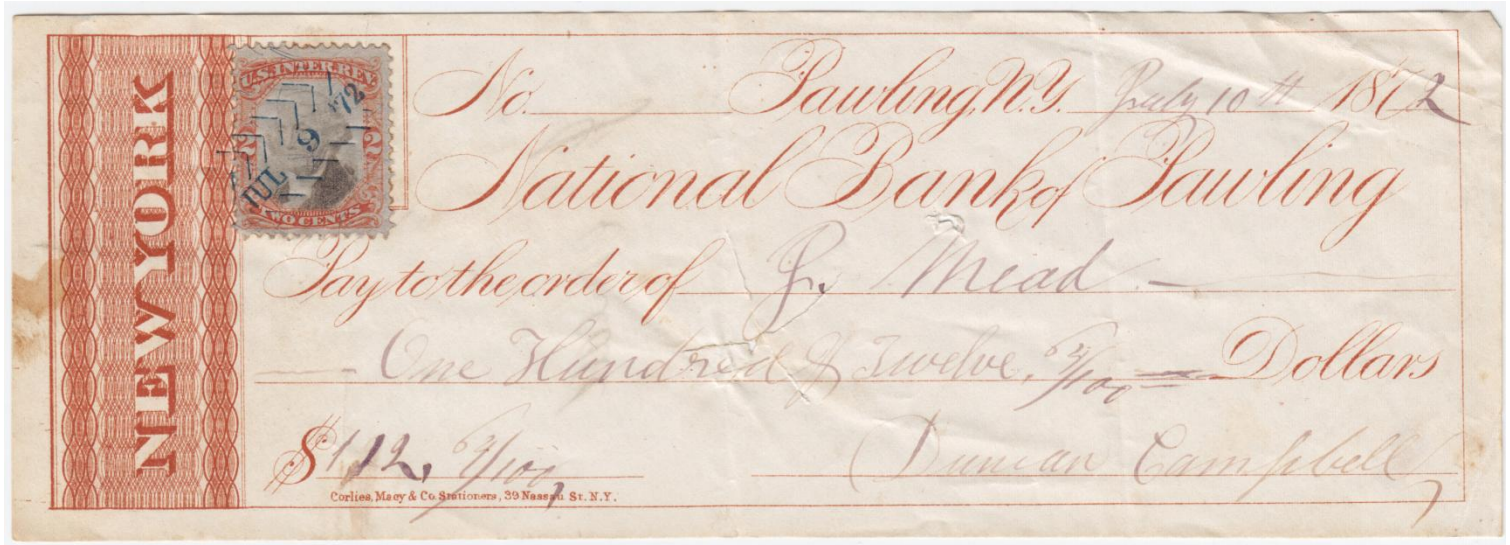 NEW YORK
U.S. INTER. REV.
2 2
JUL 9 '72
TWO CENTS
No. Pawling, N.Y. July 10th 1872
National Bank of Pawling
Pay to the order of J. Mead
One Hundred & Twelve, /100 Dollars
$112, /100
Duncan Campbell
Corlies, Macy & Co. Stationers, 39 Nassau St. N.Y.